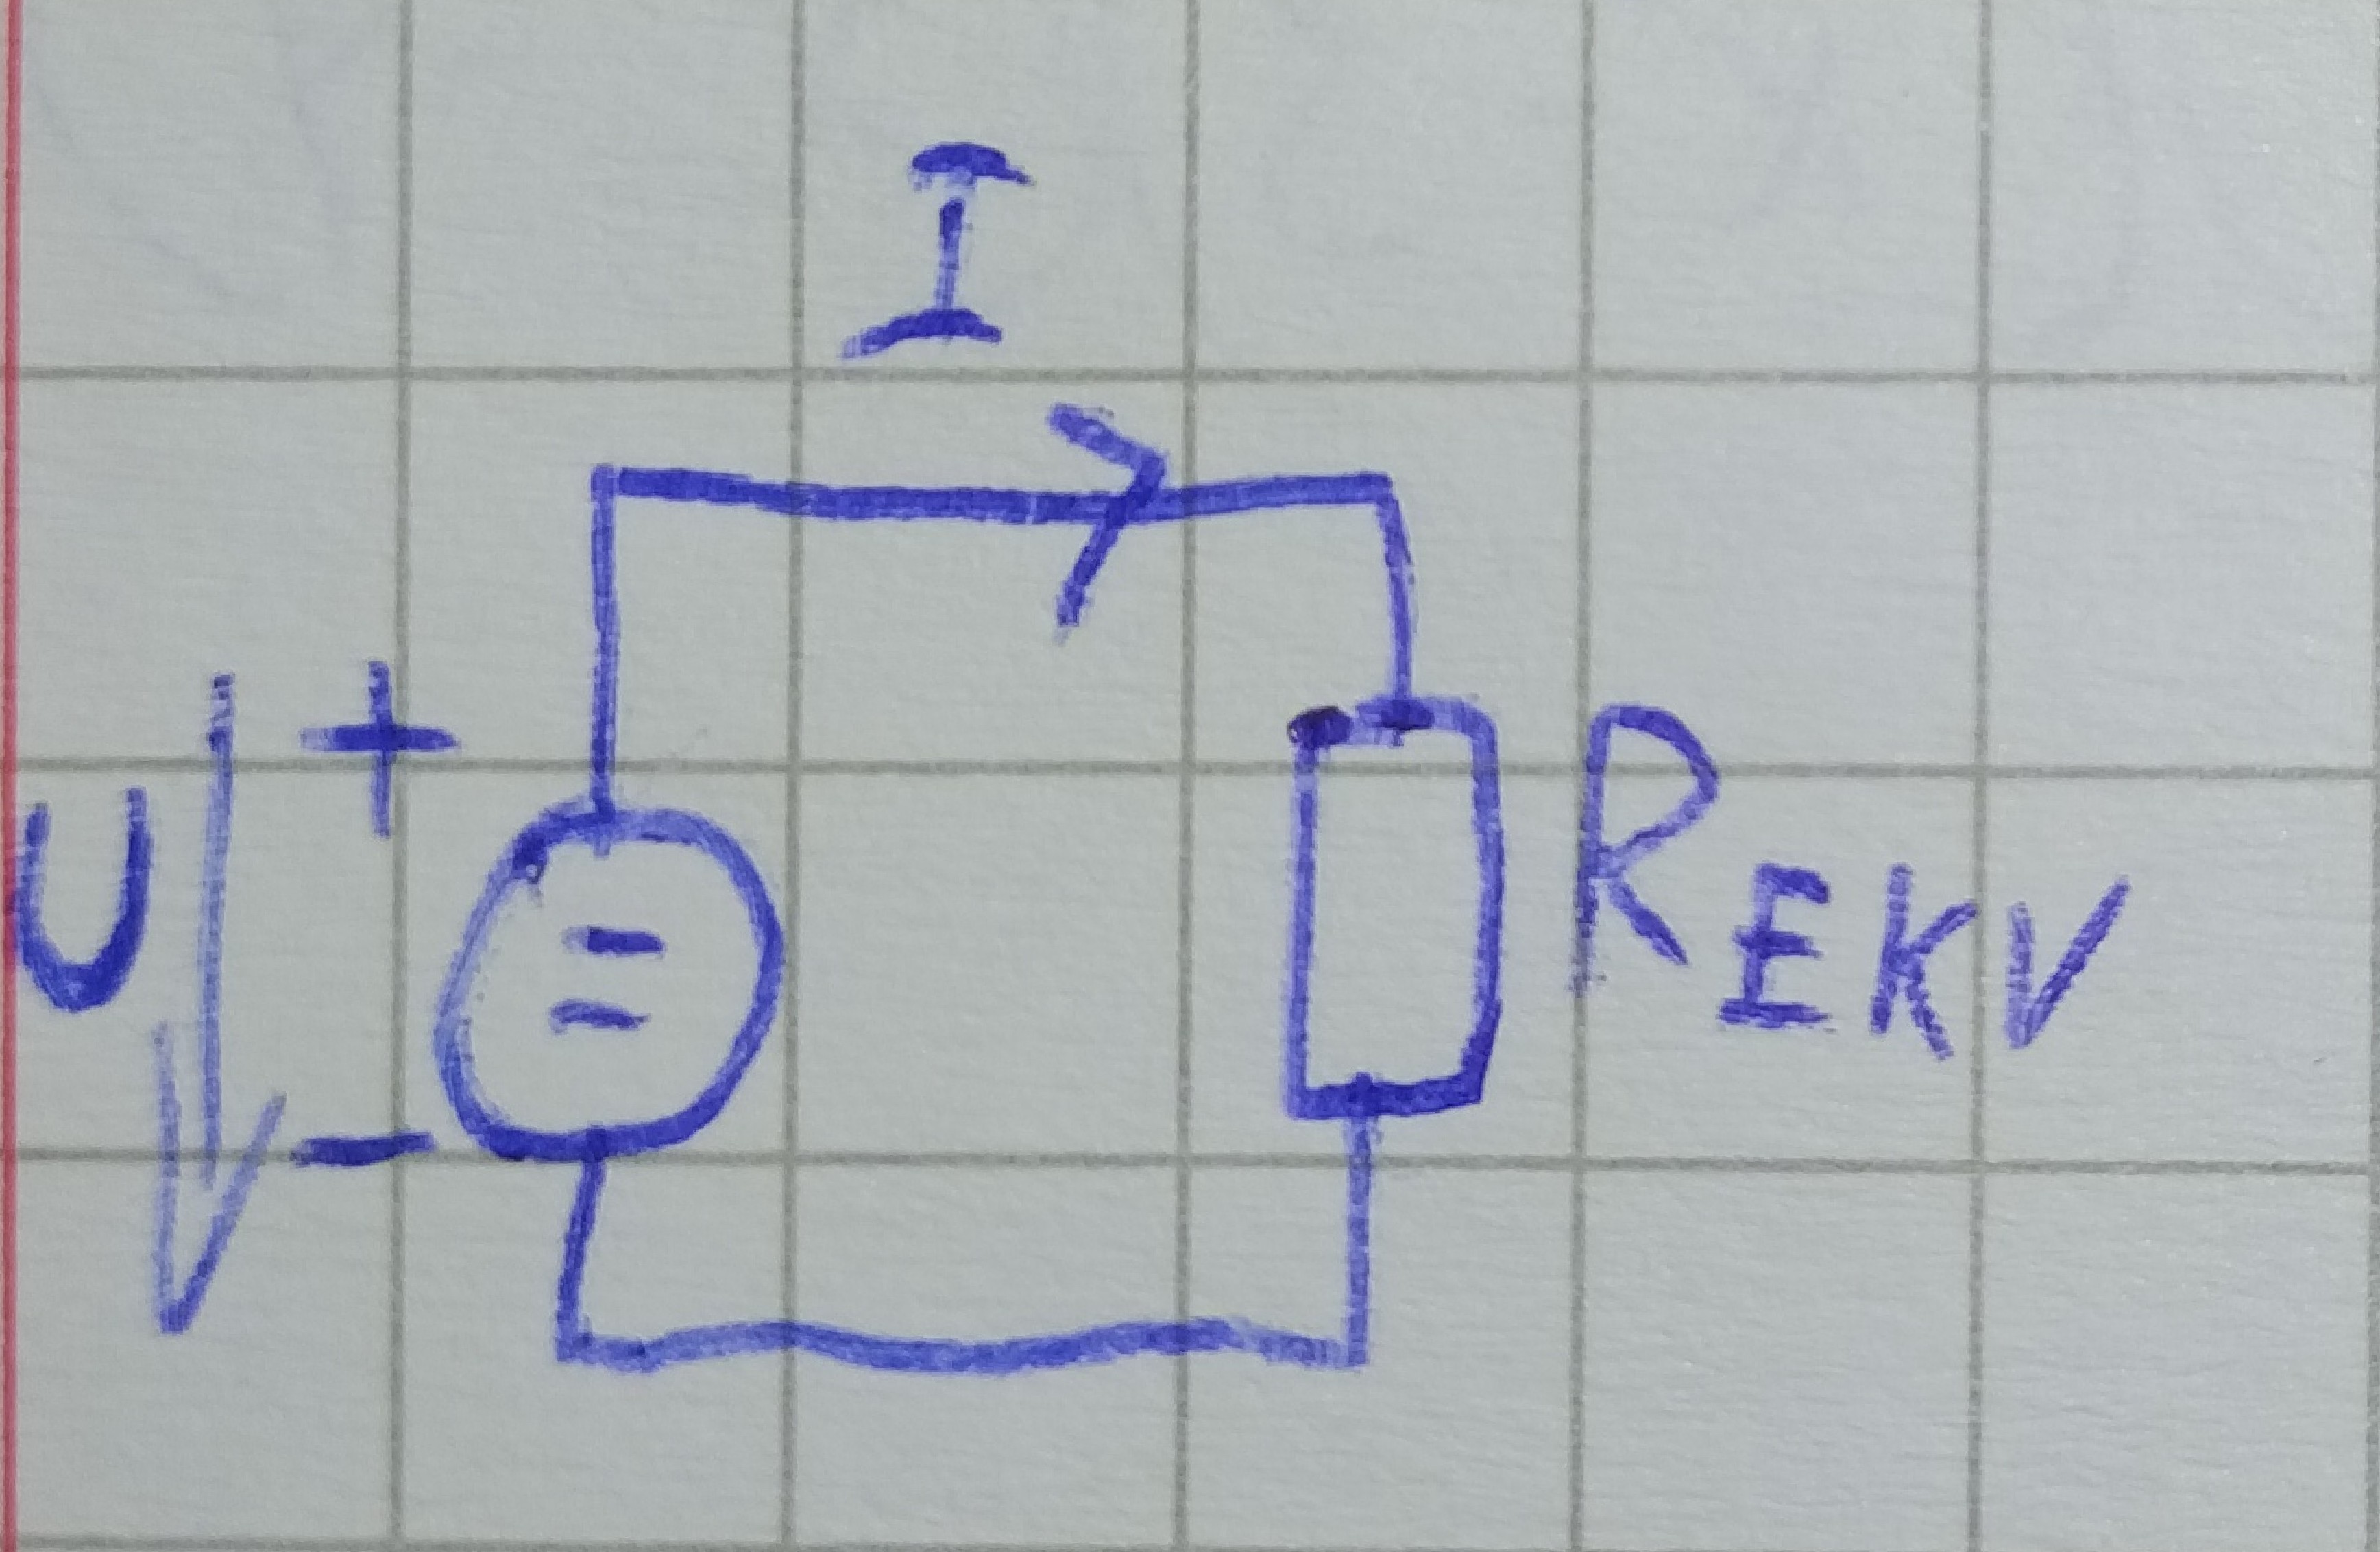 I
+
U
R_EKV
-